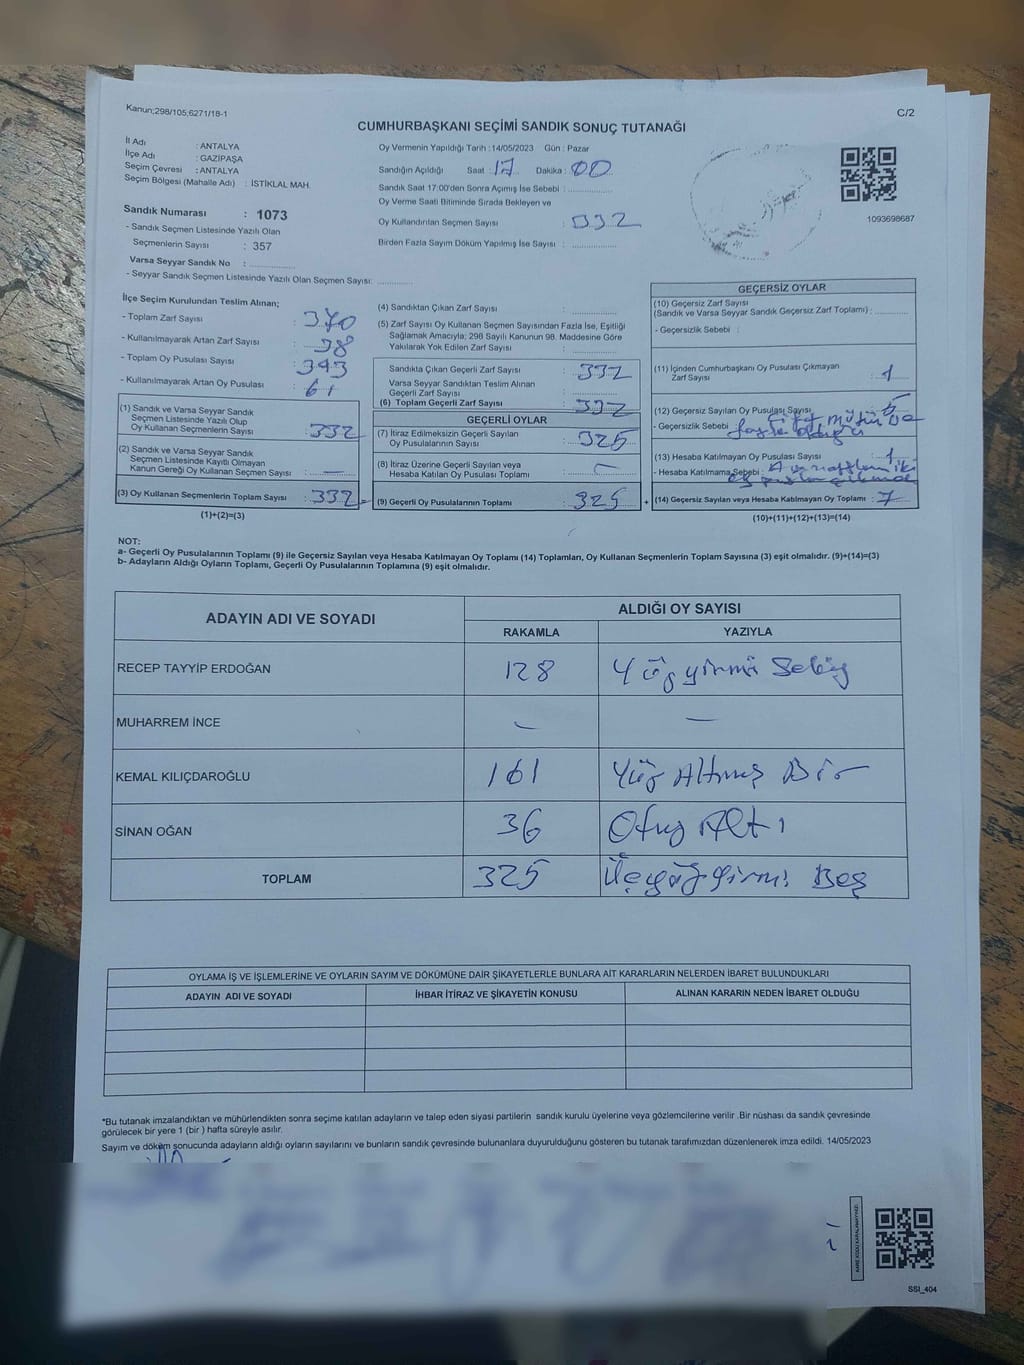 Kanun;298/105;6271/18-1
C/2
CUMHURBAŞKANI SEÇİMİ SANDIK SONUÇ TUTANAĞI
İl Adı : ANTALYA
İlçe Adı : GAZİPAŞA
Seçim Çevresi : ANTALYA
Seçim Bölgesi (Mahalle Adı) : İSTİKLAL MAH.
Sandık Numarası : 1073
- Sandık Seçmen Listesinde Yazılı Olan
Seçmenlerin Sayısı : 357
Varsa Seyyar Sandık No :
- Seyyar Sandık Seçmen Listesinde Yazılı Olan Seçmen Sayısı:
Oy Vermenin Yapıldığı Tarih :14/05/2023 Gün : Pazar
Sandığın Açıldığı Saat : 17 Dakika : 00
Sandık Saat 17:00'den Sonra Açımış İse Sebebi :
Oy Verme Saati Bitiminde Sırada Bekleyen ve
Oy Kullandırılan Seçmen Sayısı : 332
Birden Fazla Sayım Döküm Yapılmış İse Sayısı :
1093698687
İlçe Seçim Kurulundan Teslim Alınan;
- Toplam Zarf Sayısı : 370
- Kullanılmayarak Artan Zarf Sayısı : 38
- Toplam Oy Pusulası Sayısı : 393
- Kullanılmayarak Artan Oy Pusulası : 61
(1) Sandık ve Varsa Seyyar Sandık
Seçmen Listesinde Yazılı Olup
Oy Kullanan Seçmenlerin Sayısı : 332
(2) Sandık ve Varsa Seyyar Sandık
Seçmen Listesinde Kayıtlı Olmayan
Kanun Gereği Oy Kullanan Seçmen Sayısı : —
(3) Oy Kullanan Seçmenlerin Toplam Sayısı : 332
(1)+(2)=(3)
(4) Sandıktan Çıkan Zarf Sayısı :
(5) Zarf Sayısı Oy Kullanan Seçmen Sayısından Fazla İse, Eşitliği
Sağlamak Amacıyla; 298 Sayılı Kanunun 98. Maddesine Göre
Yakılarak Yok Edilen Zarf Sayısı :
Sandıkta Çıkan Geçerli Zarf Sayısı : 332
Varsa Seyyar Sandıktan Teslim Alınan
Geçerli Zarf Sayısı :
(6) Toplam Geçerli Zarf Sayısı : 332
GEÇERLİ OYLAR
(7) İtiraz Edilmeksizin Geçerli Sayılan
Oy Pusulalarının Sayısı : 325
(8) İtiraz Üzerine Geçerli Sayılan veya
Hesaba Katılan Oy Pusulası Toplamı : —
(9) Geçerli Oy Pusulalarının Toplamı : 325
GEÇERSİZ OYLAR
(10) Geçersiz Zarf Sayısı
(Sandık ve Varsa Seyyar Sandık Geçersiz Zarf Toplamı) :
- Geçersizlik Sebebi :
(11) İçinden Cumhurbaşkanı Oy Pusulası Çıkmayan
Zarf Sayısı : 1
(12) Geçersiz Sayılan Oy Pusulası Sayısı : 5
- Geçersizlik Sebebi
(13) Hesaba Katılmayan Oy Pusulası Sayısı : 1
- Hesaba Katılmama Sebebi :
(14) Geçersiz Sayılan veya Hesaba Katılmayan Oy Toplamı : 7
(10)+(11)+(12)+(13)=(14)
NOT:
a- Geçerli Oy Pusulalarının Toplamı (9) ile Geçersiz Sayılan veya Hesaba Katılmayan Oy Toplamı (14) Toplamları, Oy Kullanan Seçmenlerin Toplam Sayısına (3) eşit olmalıdır. (9)+(14)=(3)
b- Adayların Aldığı Oyların Toplamı, Geçerli Oy Pusulalarının Toplamına (9) eşit olmalıdır.
ADAYIN ADI VE SOYADI
ALDIĞI OY SAYISI
RAKAMLA YAZIYLA
RECEP TAYYİP ERDOĞAN 128 Yüz yirmi Sekiz
MUHARREM İNCE — —
KEMAL KILIÇDAROĞLU 161 Yüz Altmış Bir
SİNAN OĞAN 36 Otuz Altı
TOPLAM 325 Üçyüz yirmi Beş
OYLAMA İŞ VE İŞLEMLERİNE VE OYLARIN SAYIM VE DÖKÜMÜNE DAİR ŞİKAYETLERLE BUNLARA AİT KARARLARIN NELERDEN İBARET BULUNDUKLARI
ADAYIN ADI VE SOYADI İHBAR İTİRAZ VE ŞİKAYETİN KONUSU ALINAN KARARIN NEDEN İBARET OLDUĞU
*Bu tutanak imzalandıktan ve mühürlendikten sonra seçime katılan adayların ve talep eden siyasi partilerin sandık kurulu üyelerine veya gözlemcilerine verilir .Bir nüshası da sandık çevresinde
görülecek bir yere 1 (bir ) hafta süreyle asılır.
Sayım ve döküm sonucunda adayların aldığı oyların sayılarını ve bunların sandık çevresinde bulunanlara duyurulduğunu gösteren bu tutanak tarafımızdan düzenlenerek imza edildi. 14/05/2023
SSI_404